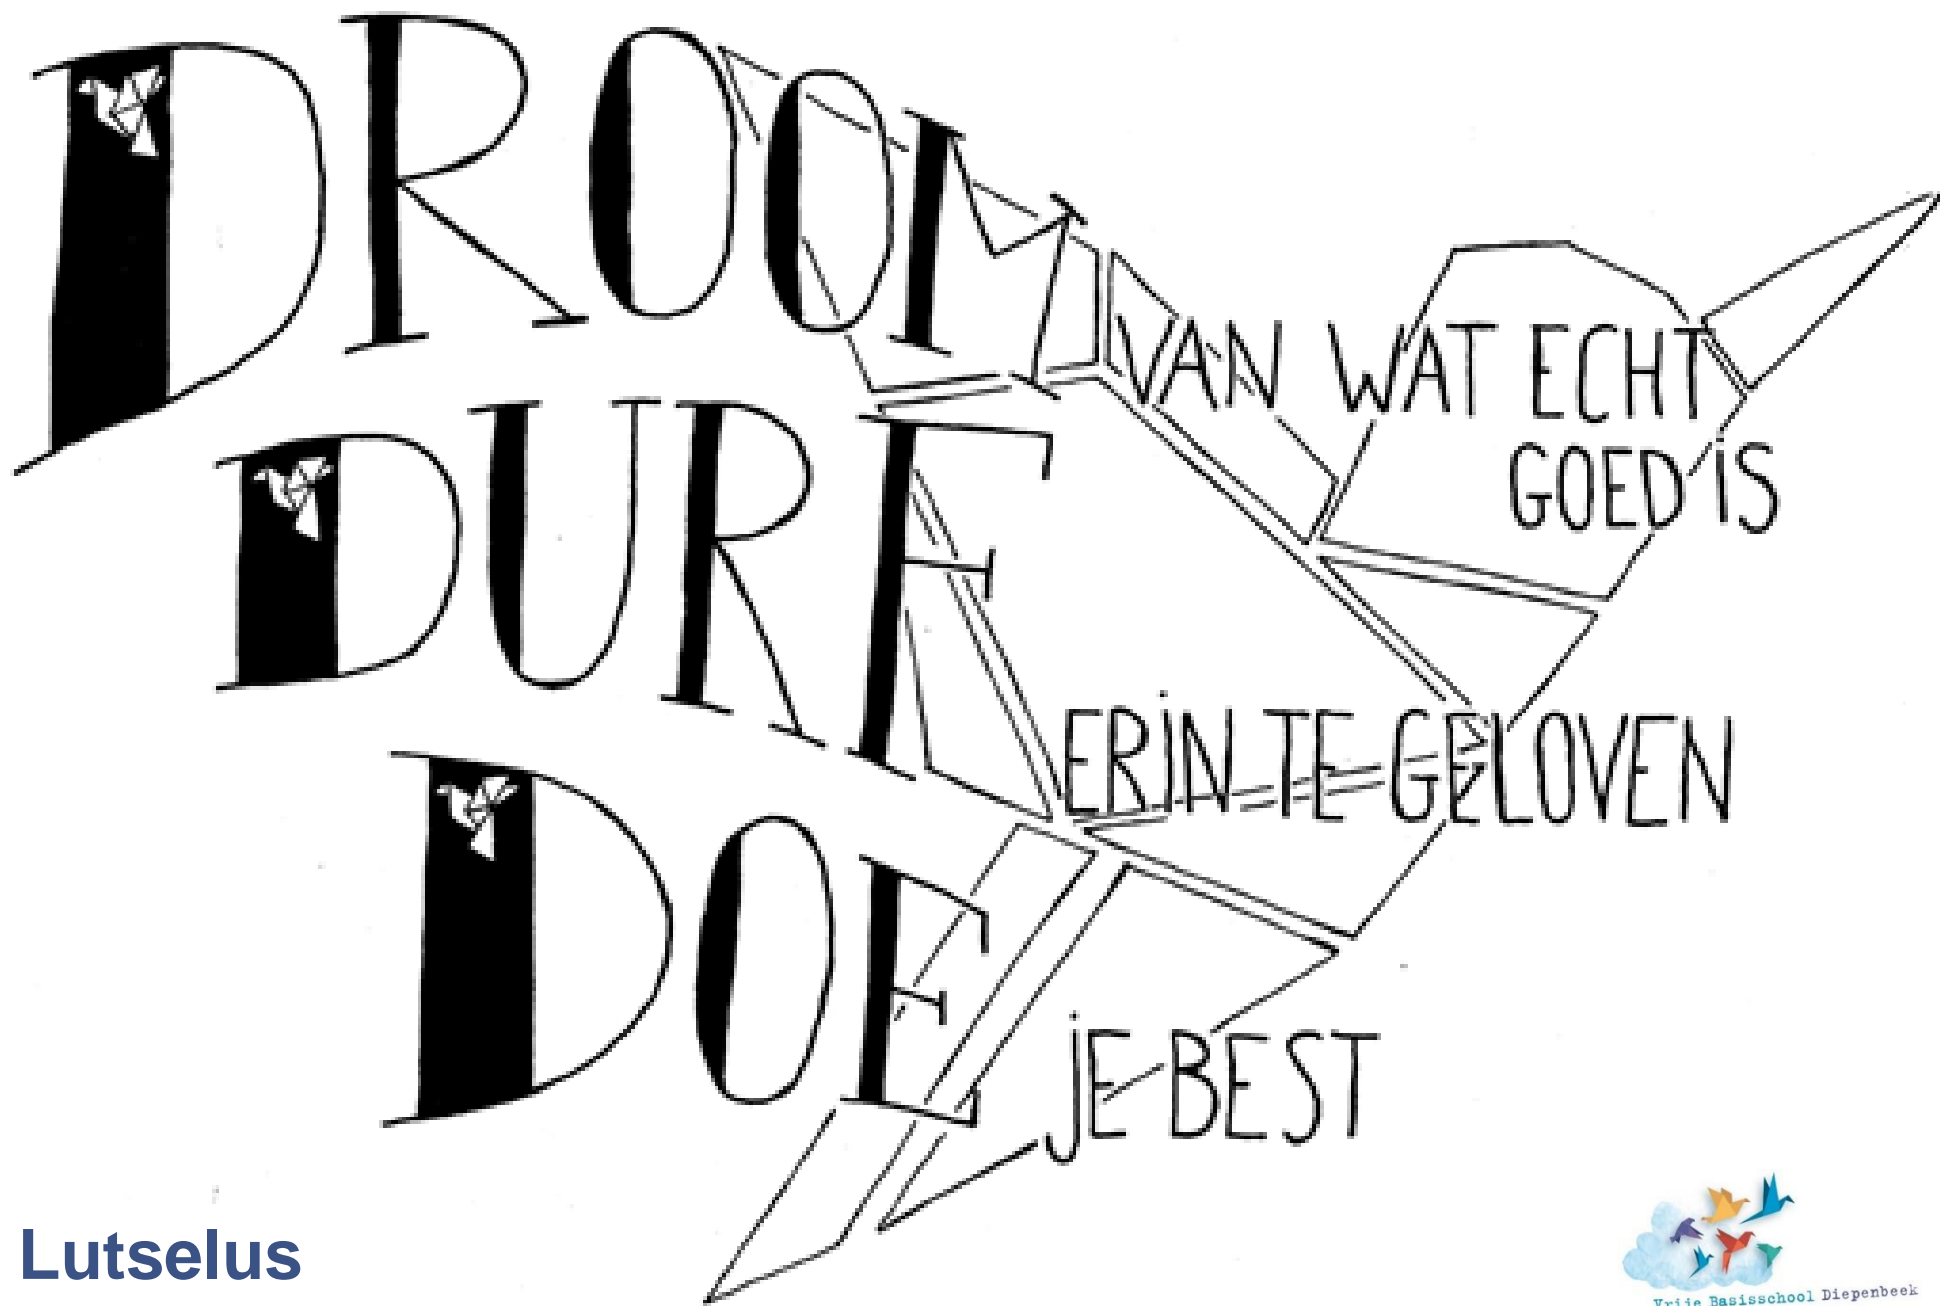 DROOM VAN WAT ECHT
GOED iS
DURF ERiN TE GELOVEN
DOE jE BEST
Lutselus
Vrije Basisschool Diepenbeek